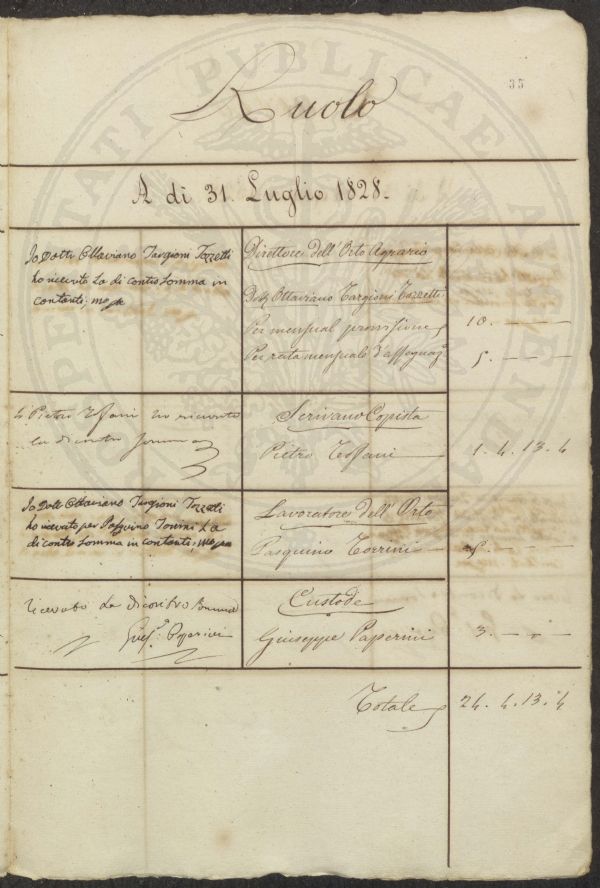 35
Ruolo
A di 31. Luglio 1828.
Io Dott. Ottaviano Targioni Tozzetti
ho ricevuto la di contro Somma in
contanti; mo. pa
Direttore dell' Orto Agrario
Dott. Ottaviano Targioni Tozzetti
Per mensual provisione 10. — —
Per rata mensuale d'assegnaz.e 5. — —
Io Pietro Tofani ho ricevuto
la di contro Somma
Scrivano Copista
Pietro Tofani 1. 4. 13. 4
Io Dott. Ottaviano Targioni Tozzetti
ho ricevuto per Pasquino Torrini La
di contro Somma in contanti; mo. pa
Lavoratore dell' Orto
Pasquino Torrini 5. — —
Ricevuto la di contro Somma
Giuse. Paperini
Custode
Giuseppe Paperini 3. — —
Totale 24. 4. 13. 4
PIETATI PUBLICAE